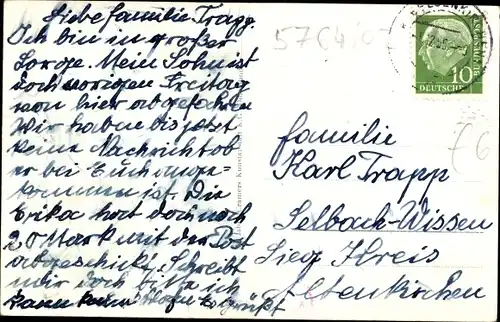 Liebe Familie Trapp.
Ich bin in großer
Sorge. Mein Sohn ist
doch vorigen Freitag
von hier abgefahren
Wir haben bis jetzt
keine Nachricht ob
er bei Euch ange-
kommen ist. Die
Erika hat doch noch
20 Mark mit der Post
abgeschickt. Schreibt
mir doch bitte ich
kann kaum grüßt
5764
10
DEUTSCHE
76
Familie
Karl Trapp
Selbach-Wissen
Sieg Kreis
Altenkirchen